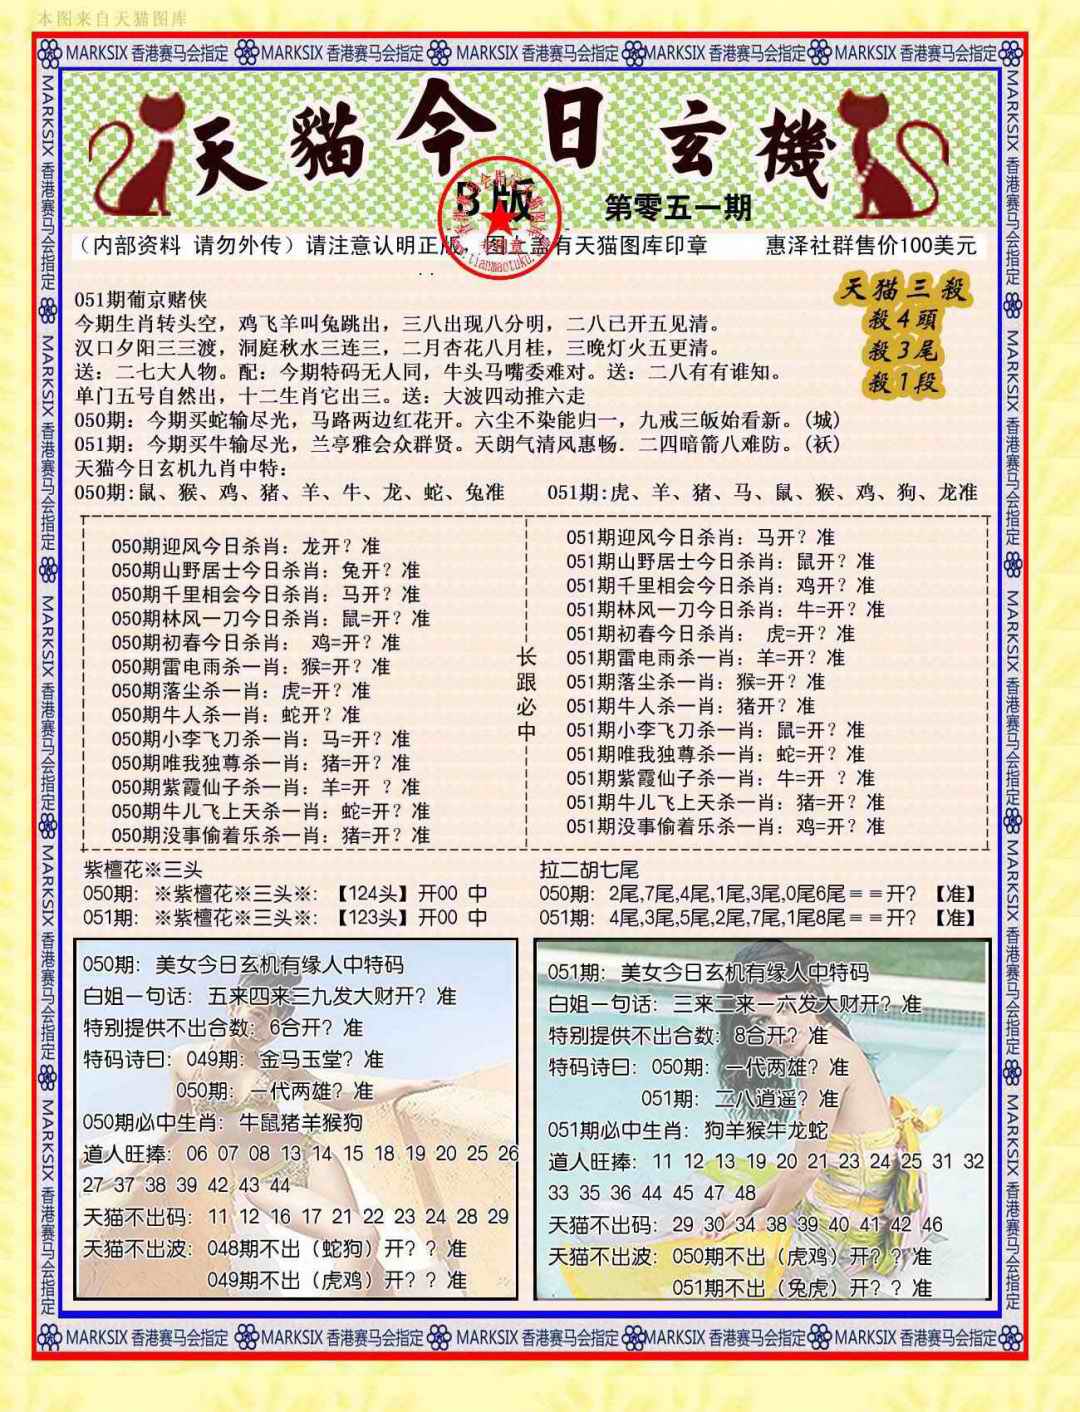 本图来自天猫图库
MARKSIX 香港赛马会指定 MARKSIX 香港赛马会指定 MARKSIX 香港赛马会指定 MARKSIX 香港赛马会指定 MARKSIX 香港赛马会指定
天貓今日玄機
B版
第零五一期
（内部资料 请勿外传）请注意认明正版，图上盖有天猫图库印章 惠泽社群售价100美元
天猫三殺
殺4頭
殺3尾
殺1段
051期葡京赌侠
今期生肖转头空，鸡飞羊叫兔跳出，三八出现八分明，二八已开五见清。
汉口夕阳三三渡，洞庭秋水三连三，二月杏花八月桂，三晚灯火五更清。
送：二七大人物。配：今期特码无人同，牛头马嘴委难对。送：二八有有谁知。
单门五号自然出，十二生肖它出三。送：大波四动推六走
050期：今期买蛇输尽光，马路两边红花开。六尘不染能归一，九戒三皈始看新。(城)
051期：今期买牛输尽光，兰亭雅会众群贤。天朗气清风惠畅．二四暗箭八难防。(袄)
天猫今日玄机九肖中特：
050期:鼠、猴、鸡、猪、羊、牛、龙、蛇、兔准 051期:虎、羊、猪、马、鼠、猴、鸡、狗、龙准
050期迎风今日杀肖：龙开？准
050期山野居士今日杀肖：兔开？准
050期千里相会今日杀肖：马开？准
050期林风一刀今日杀肖：鼠=开？准
050期初春今日杀肖： 鸡=开？准
050期雷电雨杀一肖：猴=开？准
050期落尘杀一肖：虎=开？准
050期牛人杀一肖：蛇开？准
050期小李飞刀杀一肖：马=开？准
050期唯我独尊杀一肖：猪=开？准
050期紫霞仙子杀一肖：羊=开 ？准
050期牛儿飞上天杀一肖：蛇=开？准
050期没事偷着乐杀一肖：猪=开？准
长跟必中
051期迎风今日杀肖：马开？准
051期山野居士今日杀肖：鼠开？准
051期千里相会今日杀肖：鸡开？准
051期林风一刀今日杀肖：牛=开？准
051期初春今日杀肖： 虎=开？准
051期雷电雨杀一肖：羊=开？准
051期落尘杀一肖：猴=开？准
051期牛人杀一肖：猪开？准
051期小李飞刀杀一肖：鼠=开？准
051期唯我独尊杀一肖：蛇=开？准
051期紫霞仙子杀一肖：牛=开 ？准
051期牛儿飞上天杀一肖：猪=开？准
051期没事偷着乐杀一肖：鸡=开？准
紫檀花※三头
050期：※紫檀花※三头※：【124头】开00 中
051期：※紫檀花※三头※：【123头】开00 中
拉二胡七尾
050期：2尾,7尾,4尾,1尾,3尾,0尾6尾＝＝开？【准】
051期：4尾,3尾,5尾,2尾,7尾,1尾8尾＝＝开？【准】
050期：美女今日玄机有缘人中特码
白姐一句话：五来四来三九发大财开？准
特别提供不出合数：6合开？准
特码诗曰：049期：金马玉堂？准
050期：一代两雄？准
050期必中生肖：牛鼠猪羊猴狗
道人旺捧：06 07 08 13 14 15 18 19 20 25 26
27 37 38 39 42 43 44
天猫不出码：11 12 16 17 21 22 23 24 28 29
天猫不出波：048期不出（蛇狗）开？？准
049期不出（虎鸡）开？？准
051期：美女今日玄机有缘人中特码
白姐一句话：三来二来一六发大财开？准
特别提供不出合数：8合开？准
特码诗曰：050期：一代两雄？准
051期：二八逍遥？准
051期必中生肖：狗羊猴牛龙蛇
道人旺捧：11 12 13 19 20 21 23 24 25 31 32
33 35 36 44 45 47 48
天猫不出码：29 30 34 38 39 40 41 42 46
天猫不出波：050期不出（虎鸡）开？？准
051期不出（兔虎）开？？准
MARKSIX 香港赛马会指定 MARKSIX 香港赛马会指定 MARKSIX 香港赛马会指定 MARKSIX 香港赛马会指定 MARKSIX 香港赛马会指定
MARKSIX 香港赛马会指定 MARKSIX 香港赛马会指定 MARKSIX 香港赛马会指定 MARKSIX 香港赛马会指定 MARKSIX 香港赛马会指定
MARKSIX 香港赛马会指定 MARKSIX 香港赛马会指定 MARKSIX 香港赛马会指定 MARKSIX 香港赛马会指定 MARKSIX 香港赛马会指定